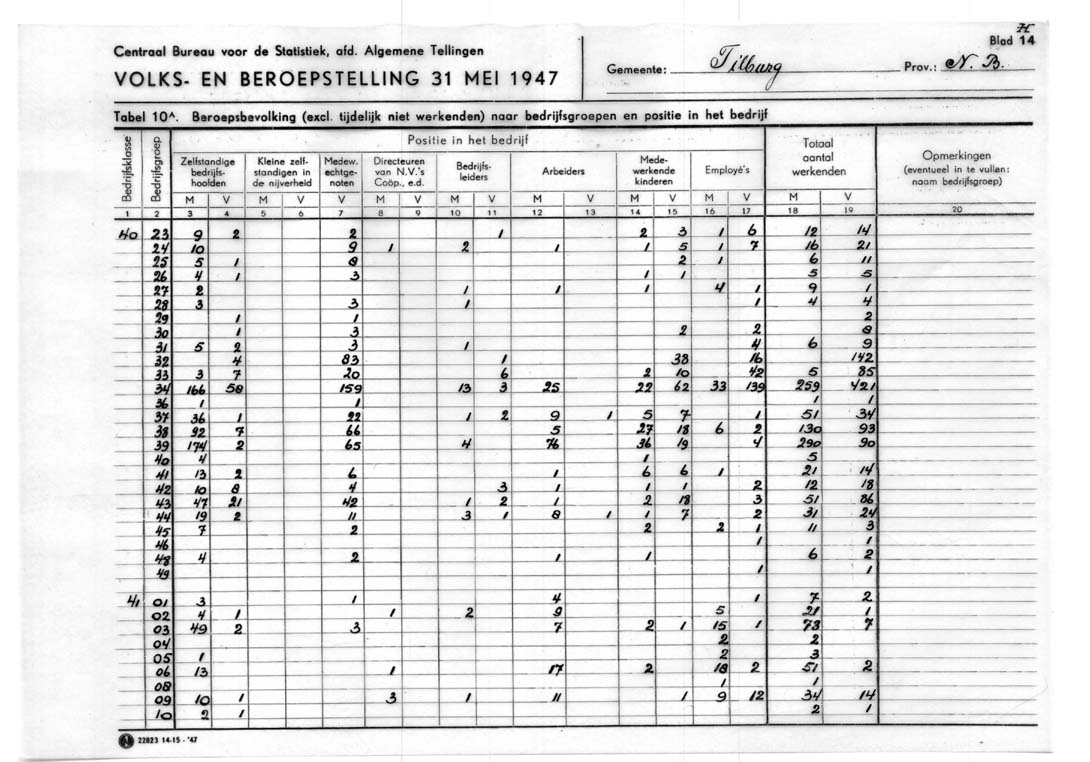 H
Blad 14
Centraal Bureau voor de Statistiek, afd. Algemene Tellingen
VOLKS- EN BEROEPSTELLING 31 MEI 1947
Gemeente: Tilburg Prov.: N. B.
Tabel 10A. Beroepsbevolking (excl. tijdelijk niet werkenden) naar bedrijfsgroepen en positie in het bedrijf
Bedrijfsklasse Bedrijfsgroep Positie in het bedrijf Totaal aantal werkenden Opmerkingen (eventueel in te vullen: naam bedrijfsgroep)
Zelfstandige bedrijfshoofden Kleine zelfstandigen in de nijverheid Medew. echtgenoten Directeuren van N.V.'s Coöp., e.d. Bedrijfsleiders Arbeiders Medewerkende kinderen Employé's
M V M V V M V M V M V M V M V M V
1 2 3 4 5 6 7 8 9 10 11 12 13 14 15 16 17 18 19 20
40 23 9 2 2 1 2 3 1 6 12 14
24 10 9 1 2 1 1 5 1 7 16 21
25 5 1 8 2 1 6 11
26 4 1 3 1 1 5 5
27 2 1 1 1 4 1 9 1
28 3 3 1 1 4 4
29 1 1 2
30 1 3 2 2 8
31 5 2 3 1 4 6 9
32 4 83 1 38 16 142
33 3 7 20 6 2 10 42 5 85
34 166 58 159 13 3 25 22 62 33 139 259 421
36 1 1 1 1
37 36 1 22 1 2 9 1 5 7 1 51 34
38 92 7 66 5 27 18 6 2 130 93
39 174 2 65 4 76 36 19 4 290 90
40 4 1 5
41 13 2 6 1 6 6 1 21 14
42 10 8 4 3 1 1 1 2 12 18
43 47 21 42 1 2 1 2 18 3 51 86
44 19 2 11 3 1 8 1 1 7 2 31 24
45 7 2 2 2 1 11 3
46 1 1
48 4 2 1 1 6 2
49 1 1
41 01 3 1 4 1 7 2
02 4 1 1 2 9 5 21 1
03 49 2 3 7 2 1 15 1 73 7
04 2 2
05 1 2 3
06 13 1 17 2 18 2 51 2
08 1 1
09 10 1 3 1 11 1 9 12 34 14
10 2 1 2 1
22823 14-15 - '47